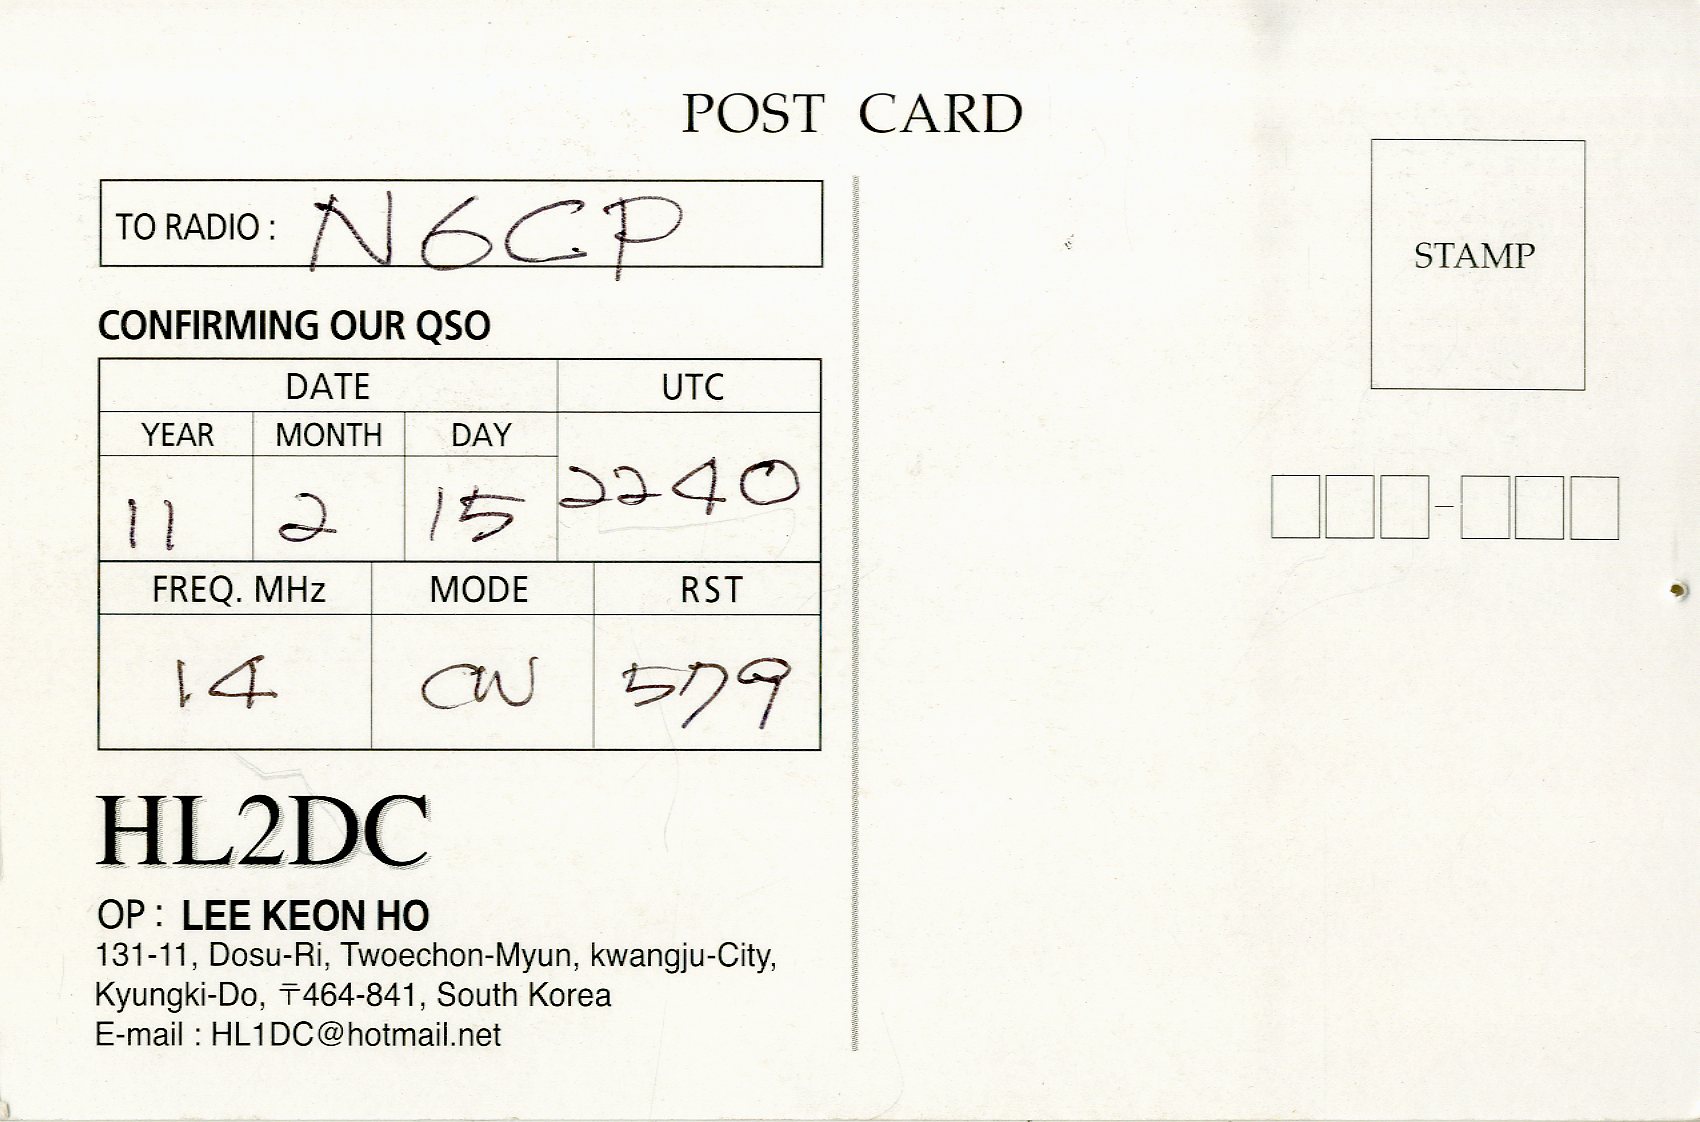 POST CARD
TO RADIO : N6CP
STAMP
CONFIRMING OUR QSO
DATE UTC
YEAR MONTH DAY
11 2 15 2240
FREQ. MHz MODE RST
14 CW 579
HL2DC
OP : LEE KEON HO
131-11, Dosu-Ri, Twoechon-Myun, kwangju-City,
Kyungki-Do, 〒464-841, South Korea
E-mail : HL1DC@hotmail.net